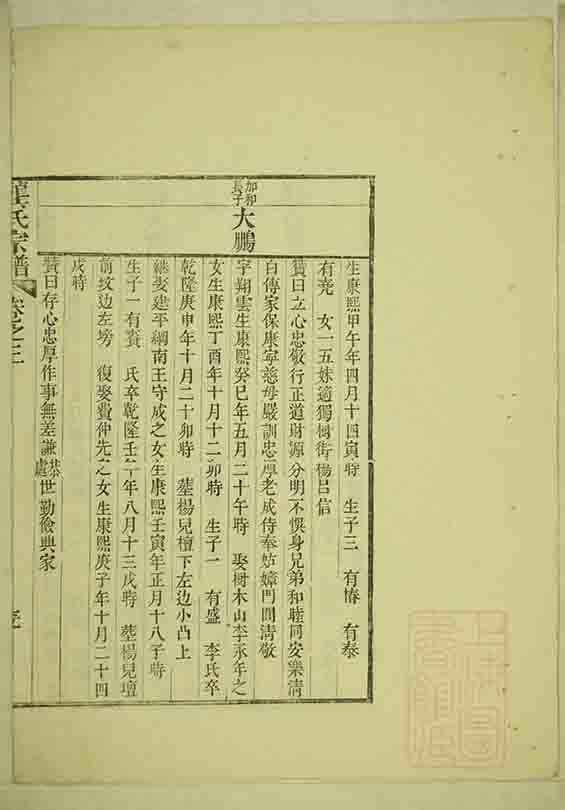 生康熙甲午年四月十四寅時　生子三　有椿　有泰
有堯　女一五妹適獨樹街楊呂信
贊曰立心忠敬行正道財源分明不懼身兄弟和睦同安樂清
白傳家保康寧慈母嚴訓忠厚老成侍奉姑嫜門閭清敬
加和長子
大鵬
字翔雲生康熙癸巳年五月二十午時　娶樹木山李承年之
女生康熙丁酉年十月十二卯時　生子一　有盛　李氏卒
乾隆庚申年十月二十卯時　塟楊兒壇下左边小凸上
繼娶建平綱南王守成之女生康熙壬寅年正月十八子時
生子一有賚　氏卒乾隆壬午年八月十三戌時　塟楊兒壇
前坟边左塝　復娶費仲先之女生康熙庚子年十月二十四
戌時
贊曰存心忠厚作事無差謙恭處世勤儉興家
氏宗譜
卷之三